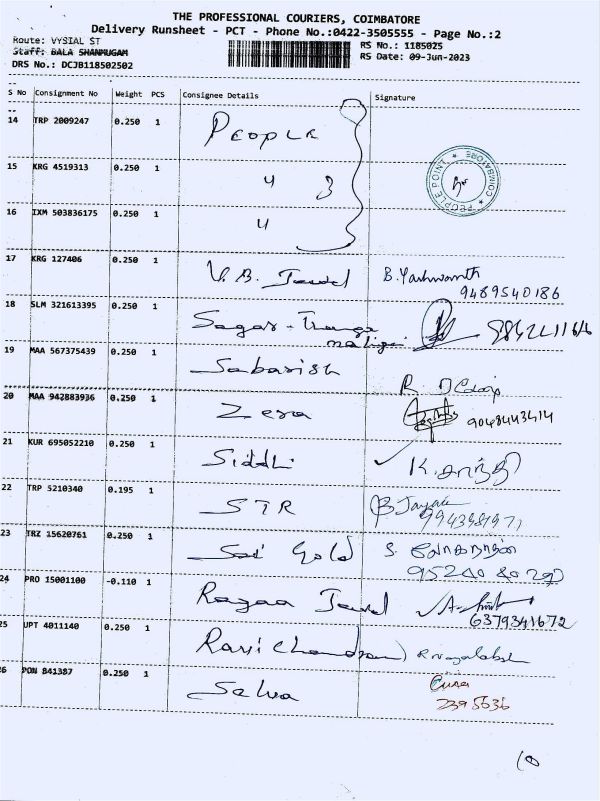 THE PROFESSIONAL COURIERS, COIMBATORE
Delivery Runsheet - PCT - Phone No.:0422-3505555 - Page No.:2
Route: VYSIAL ST
Staff: BALA SHANMUGAM
DRS No.: DCJB118502502
RS No.: 1185025
RS Date: 09-Jun-2023
S No Consignment No Weight PCS Consignee Details Signature
14 TRP 2009247 0.250 1 PEOPLE
15 KRG 4519313 0.250 1 4 3
PEOPLE POINT * COIMBATORE *
16 IXM 503836175 0.250 1 4
17 KRG 127406 0.250 1 V.B. Jewel B. Yashwanth
9489540186
18 SLM 321613395 0.250 1 Sagar - Thanga
maligai
19 MAA 567375439 0.250 1 Sabarish R.
20 MAA 942883936 0.250 1 Zera 9048443414
21 KUR 695052210 0.250 1 Siddhi K. சாந்தி
22 TRP 5210340 0.195 1 STR
9943981971
23 TRZ 15620761 0.250 1 Sai Gold S.
24 PRO 15001100 -0.110 1 Ragaa Jewel
6379341672
25 UPT 4011140 0.250 1 Ravi Chandran
26 PON 841387 0.250 1 Selva
2395636
10